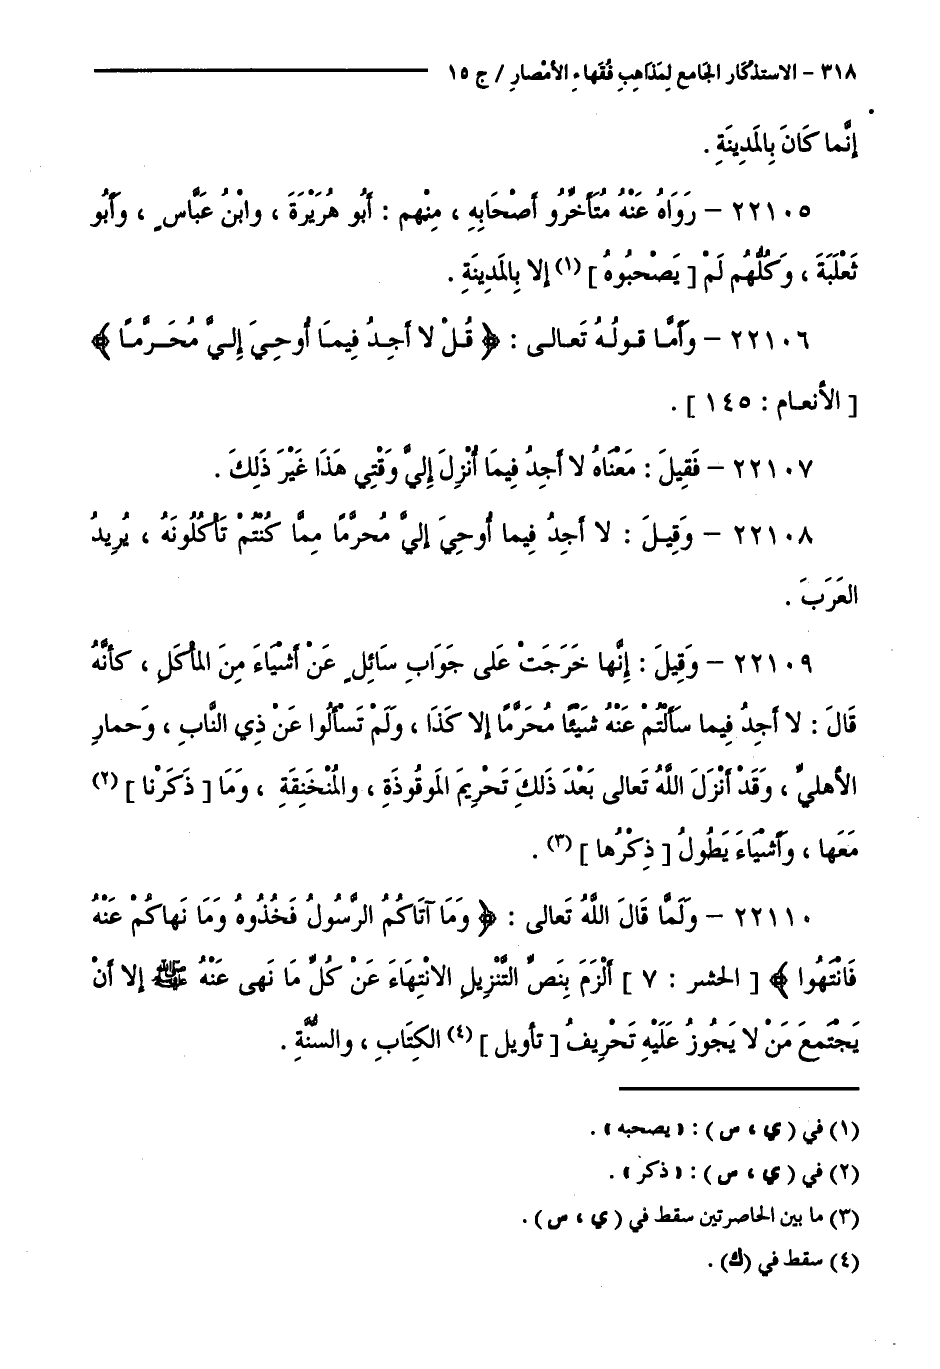 ٣١٨ - الاستذكار الجامع لمَذاهِبِ فُقَهاءِ الأمْصارِ / ج ١٥
إِنَّما كَانَ بِالمَدِينَةِ .
٢٢١٠٥ – رَوَاهُ عَنْهُ مُتَأَخِّرُو أَصْحَابِهِ ، مِنْهم : أَبُو هُرَيْرَةَ ، وابْنُ عَبَّاسٍ ، وأَبُو
ثَعْلَبَةَ ، وَكُلُّهُم لَمْ [ يَصْحبُوهُ ] (١) إلا بِالمَدِينَةِ .
٢٢١٠٦ – وَأَمَّـا قـولُـهُ تَعـالـى : ﴿ قُـلْ لا أَجِـدُ فِيمَـا أُوحِـيَ إِلـيَّ مُحَـرَّمـًا ﴾
[ الأنعـام : ١٤٥ ] .
٢٢١٠٧ – فَقِيلَ : مَعْنَاهُ لا أَجِدُ فِيمَا أُنْزِلَ إِليَّ وَقْتِي هَذَا غَيْرَ ذَلِكَ .
٢٢١٠٨ – وَقِيـلَ : لا أَجِدُ فِيما أُوحِيَ إِليَّ مُحرَّمًا مِمَّا كُنْتُمْ تَأْكُلُونَهُ ، يُرِيدُ
العَرَبَ .
٢٢١٠٩ – وَقِيلَ : إِنَّها خَرَجَتْ عَلى جَوَابِ سَائِلٍ عَنْ أَشْيَاءَ مِنَ المأْكَلِ ، كَأنَّهُ
قَالَ : لا أَجِدُ فِيما سَأَلْتُمْ عَنْهُ شَيْئًا مُحَرَّمًا إلا كَذَا ، وَلَمْ تَسْأَلُوا عَنْ ذِي النَّابِ ، وَحمارِ
الأهليِّ ، وَقَدْ أَنْزَلَ اللَّهُ تَعالى بَعْدَ ذَلكَ تَحْرِيمَ المَوقُوذَةِ ، والمُنْخَنِقَةِ ، وَمَا [ ذَكَرْنا ] (٢)
مَعَها ، وأَشْيَاءَ يَطُولُ [ ذِكْرُها ] (٣) .
٢٢١١٠ – وَلَمَّا قَالَ اللَّهُ تَعالى : ﴿ وَمَا آتَاكُمُ الرَّسُولُ فَخُذُوهُ وَمَا نَهاكُمْ عَنْهُ
فَانْتَهُوا ﴾ [ الحشر : ٧ ] أَلْزَمَ بِنَصِّ التَّنْزِيلِ الانْتِهَاءَ عَنْ كُلِّ مَا نَهى عَنْهُ ﷺ إلا أَنْ
يَجْتَمعَ مَنْ لا يَجُوزُ عَلَيْهِ تَحْرِيفُ [ تأويل ] (٤) الكِتَابِ ، والسُّنَّةِ .
(١) في ( ي ، س ) : « يصحبه » .
(٢) في ( ي ، س ) : « ذكر » .
(٣) ما بين الحاصرتين سقط في ( ي ، س ) .
(٤) سقط في (ك) .